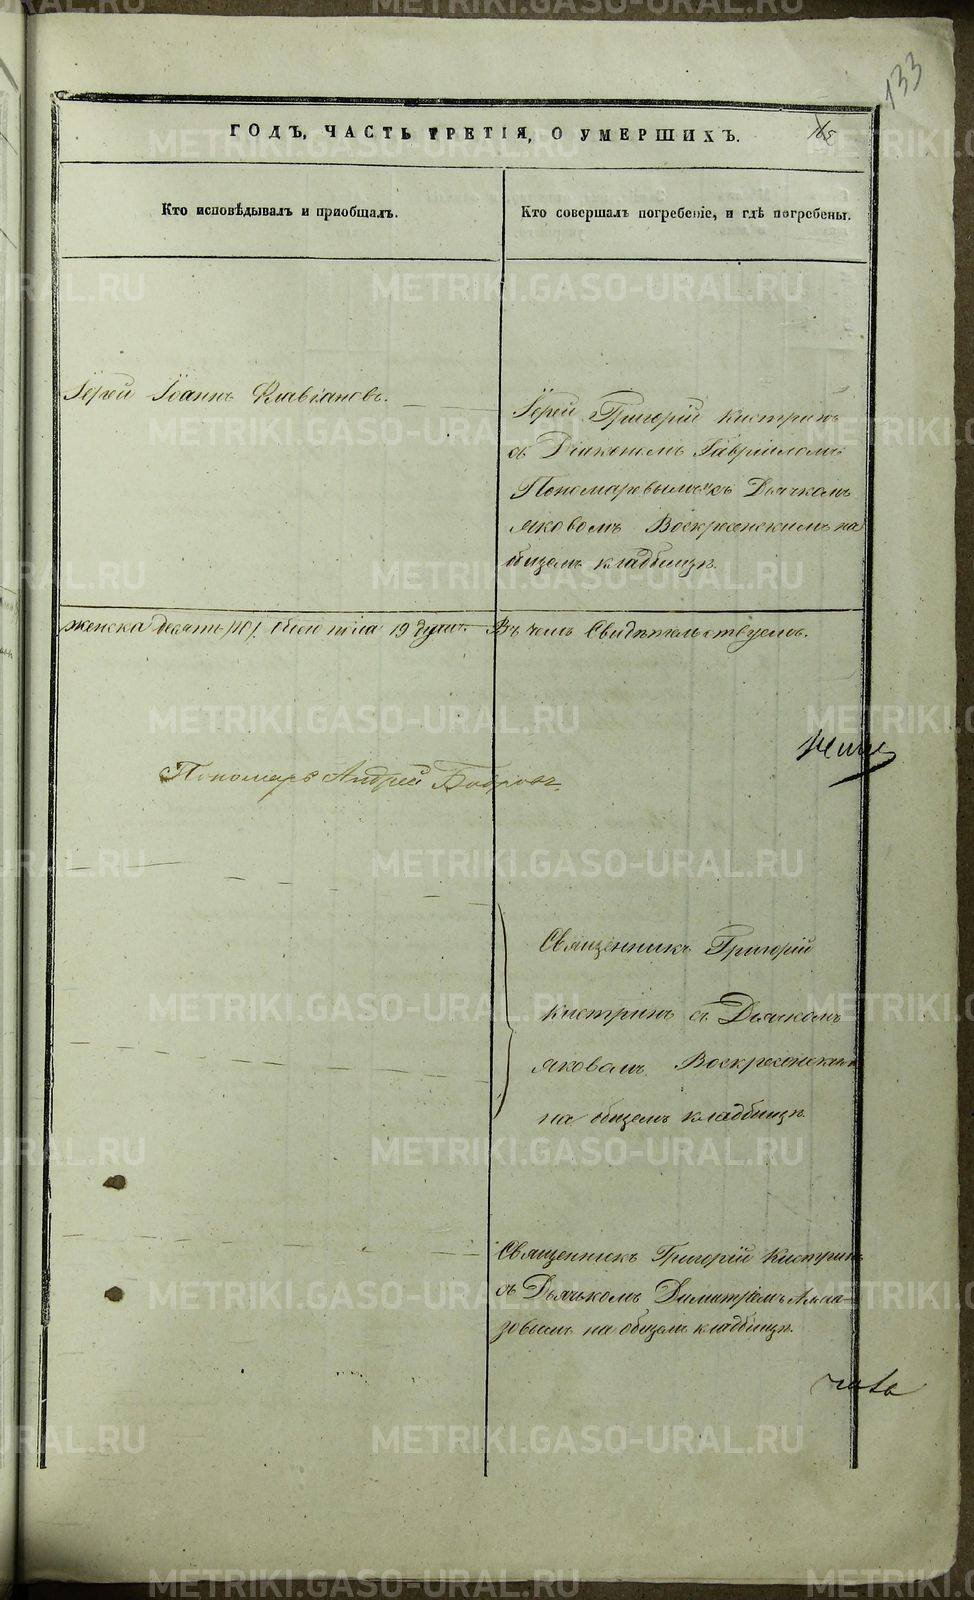 133
ГОДЪ, ЧАСТЬ ТРЕТІЯ, О УМЕРШИХЪ.
Кто исповѣдывалъ и пріобщалъ.
Кто совершалъ погребеніе, и гдѣ погребены.
Іерей Іоаннъ Флавіановъ.
Іерей Григорій Кистринъ
съ Діакономъ Гавріиломъ
Пономаревымъ съ Дьячкомъ
Яковомъ Воскресенскимъ на
общемъ кладбищѣ.
женска десять /10/. обоего пола 19 душъ. Въ чемъ Свидѣтельствуемъ.
Пономарь Андрей Бобровъ.
Священникъ Григорій
Кистринъ съ Дьячкомъ
Яковомъ Воскресенскимъ
на общемъ кладбищѣ
Священникъ Григорій Кистринъ
съ Дьячкомъ Димитріемъ Алма-
зовымъ на общемъ кладбищѣ.
METRIKI.GASO-URAL.RU